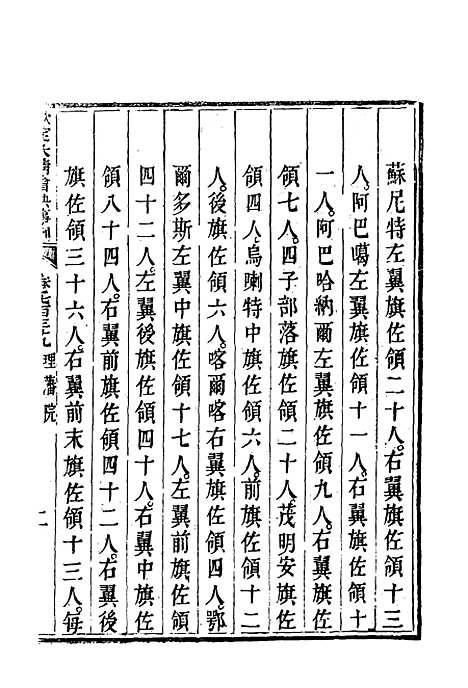 蘇尼特左翼旗佐領二十人。右翼旗佐領十三
人。阿巴噶左翼旗佐領十一人。右翼旗佐領十
一人。阿巴哈納爾左翼旗佐領九人。右翼旗佐
領七人。四子部落旗佐領二十人。茂明安旗佐
領四人。烏喇特中旗佐領六人。前旗佐領十二
人。後旗佐領六人。喀爾喀右翼旗佐領四人。鄂
爾多斯左翼中旗佐領十七人。左翼前旗佐領
四十二人。左翼後旗佐領四十人。右翼中旗佐
領八十四人。右翼前旗佐領四十二人。右翼後
旗佐領三十六人。右翼前末旗佐領十三人。每
理藩院
二